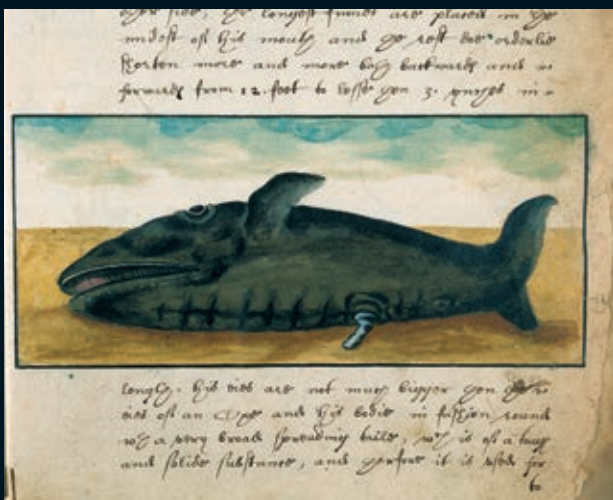 other side, the longest finnes are placed in the
midest of his mouth and the rest doe orderlie
shorten more and more both backwards and
forwards from 12. foot to lesse then 3. ynches in
length. his eies are not much bigger then the
eies of an Oxe and his bodie in fashion round
with a very broad spreading taile, wch is of a tough
and solide substance, and therfore it is used for
to